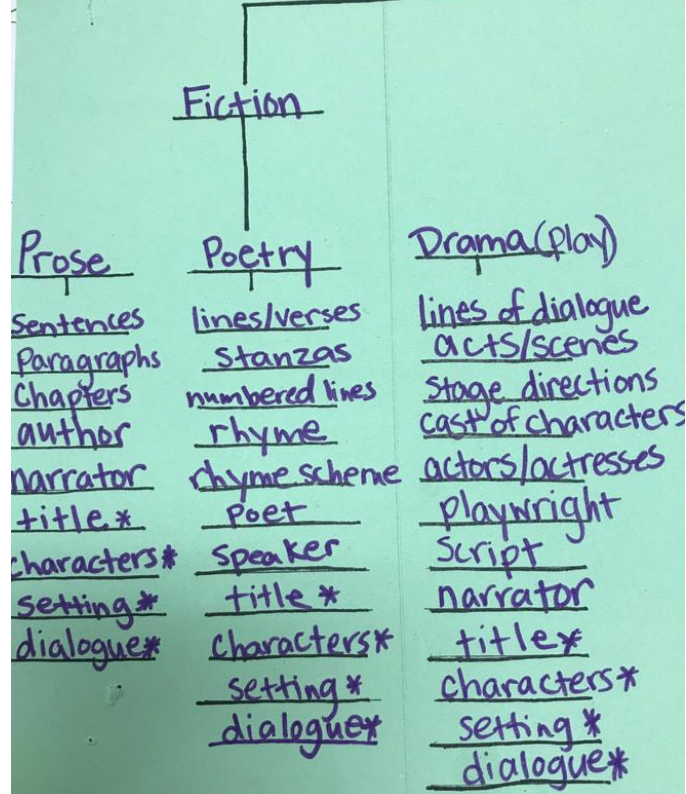 Fiction
Prose
Sentences
Paragraphs
Chapters
author
narrator
title*
characters*
setting*
dialogue*
Poetry
lines/verses
stanzas
numbered lines
rhyme
rhyme scheme
Poet
speaker
title*
characters*
setting*
dialogue*
Drama (play)
lines of dialogue
acts/scenes
stage directions
cast of characters
actors/actresses
playwright
Script
narrator
title*
characters*
setting*
dialogue*